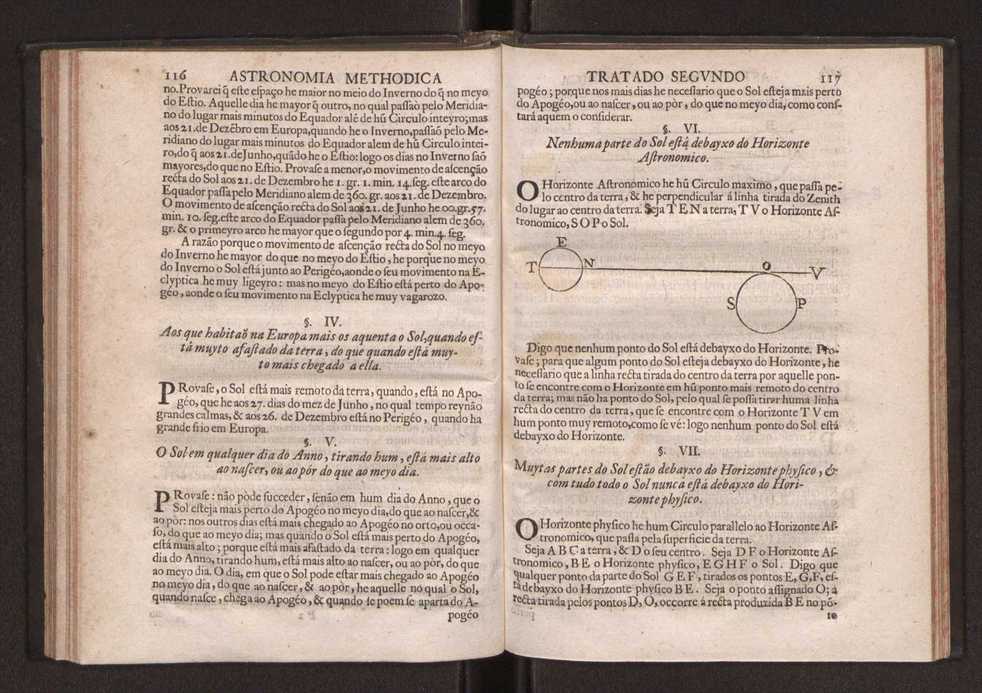 116 ASTRONOMIA METHODICA
no. Provarei q̃ este espaço he maior no meio do Inverno do q̃ no meyo
do Estio. Aquelle dia he mayor q̃ outro, no qual passaò pelo Meridia-
no do lugar mais minutos do Equador alé de hũ Circulo inteyro; mas
aos 21. de Dezẽbro em Europa, quando he o Inverno, passão pelo Me-
ridiano do lugar mais minutos do Equador alem de hũ Circulo intei-
ro, do q̃ aos 21. de Junho, quãdo he o Estio: logo os dias no Inverno saõ
mayores, do que no Estio. Provase a menor, o movimento de ascenção
recta do Sol aos 21. de Dezembro he 1. gr. 1. min. 14. seg. este arco do
Equador passa pelo Meridiano alem de 360. gr. aos 21. de Dezembro.
O movimento de ascenção recta do Sol aos 21. de Junho he 00. gr. 57.
min. 10. seg. este arco do Equador passa pelo Meridiano alem de 360.
gr. & o primeyro arco he mayor que o segundo por 4. min. 4. seg.
A razão porque o movimento de ascenção recta do Sol no meyo
do Inverno he mayor do que no meyo do Estio, he porque no meyo
do Inverno o Sol está junto ao Perigéo, aonde o seu movimento na E-
clyptica he muy ligeyro: mas no meyo do Estio está perto do Apo-
géo, aonde o seu movimento na Eclyptica he muy vagarozo.
§. IV.
Aos que habitaõ na Europa mais os aquenta o Sol, quando es-
tá muyto afastado da terra, do que quando está muy-
to mais chegado a ella.
PRovase, o Sol está mais remoto da terra, quando, está no Apo-
géo, que he aos 27. dias do mez de Junho, no qual tempo reynão
grandes calmas, & aos 26. de Dezembro está no Perigéo, quando ha
grande frio em Europa.
§. V.
O Sol em qualquer dia do Anno, tirando hum, está mais alto
ao nascer, ou ao pór do que ao meyo dia.
PRovase: não pòde succeder, senão em hum dia do Anno, que o
Sol esteja mais perto do Apogéo no meyo dia, do que ao nascer, &
ao pòr: nos outros dias está mais chegado ao Apogéo no orto, ou occa-
so, do que ao meyo dia; mas quando o Sol está mais perto do Apogéo,
está mais alto; porque está mais afastado da terra: logo em qualquer
dia do Anno, tirando hum, está mais alto ao nascer, ou ao pòr, do que
ao meyo dia. O dia, em que o Sol pode estar mais chegado ao Apogéo
no meyo dia, do que ao nascer, & ao pòr, he aquelle no qual o Sol,
quando nasce, chega ao Apogéo, & quando se poem se aparta do A-
pogéo
TRATADO SEGVNDO 117
pogéo; porque nos mais dias he necessario que o Sol esteja mais perto
do Apogéo, ou ao nascer, ou ao pòr, do que no meyo dia, como cons-
tará a quem o considerar.
§. VI.
Nenhuma parte do Sol está debayxo do Horizonte
Astronomico.
O Horizonte Astronomico he hũ Circulo maximo, que passa pe-
lo centro da terra, & he perpendicular á linha tirada do Zenith
do lugar ao centro da terra. Seja T E N a terra, T V o Horizonte As-
tronomico, S O P o Sol.
E
T N O V
S P
Digo que nenhum ponto do Sol está debayxo do Horizonte. Pro-
vase; para que algum ponto do Sol esteja debayxo do Horizonte, he
necessario que a linha recta tirada do centro da terra por aquelle pon-
to se encontre com o Horizonte em hũ ponto mais remoto do centro
da terra; mas não ha ponto do Sol, pelo qual se possa tirar huma linha
recta do centro da terra, que se encontre com o Horizonte T V em
hum ponto muy remoto, como se vé: logo nenhum ponto do Sol está
debayxo do Horizonte.
§. VII.
Muytas partes do Sol estão debayxo do Horizonte physico, &
com tudo todo o Sol nunca está debayxo do Hori-
zonte physico.
O Horizonte physico he hum Circulo parallelo ao Horizonte As-
tronomico, que passa pela superficie da terra.
Seja A B C a terra, & D o seu centro. Seja D F o Horizonte As-
tronomico, B E o Horizonte physico, E G H F o Sol. Digo que
qualquer ponto da parte do Sol G E F, tirados os pontos E, G, F, es-
tá debayxo do Horizonte physico B E. Seja o ponto assignado O; a
recta tirada pelos pontos D, O, occorre á recta produzida B E no põ-
to